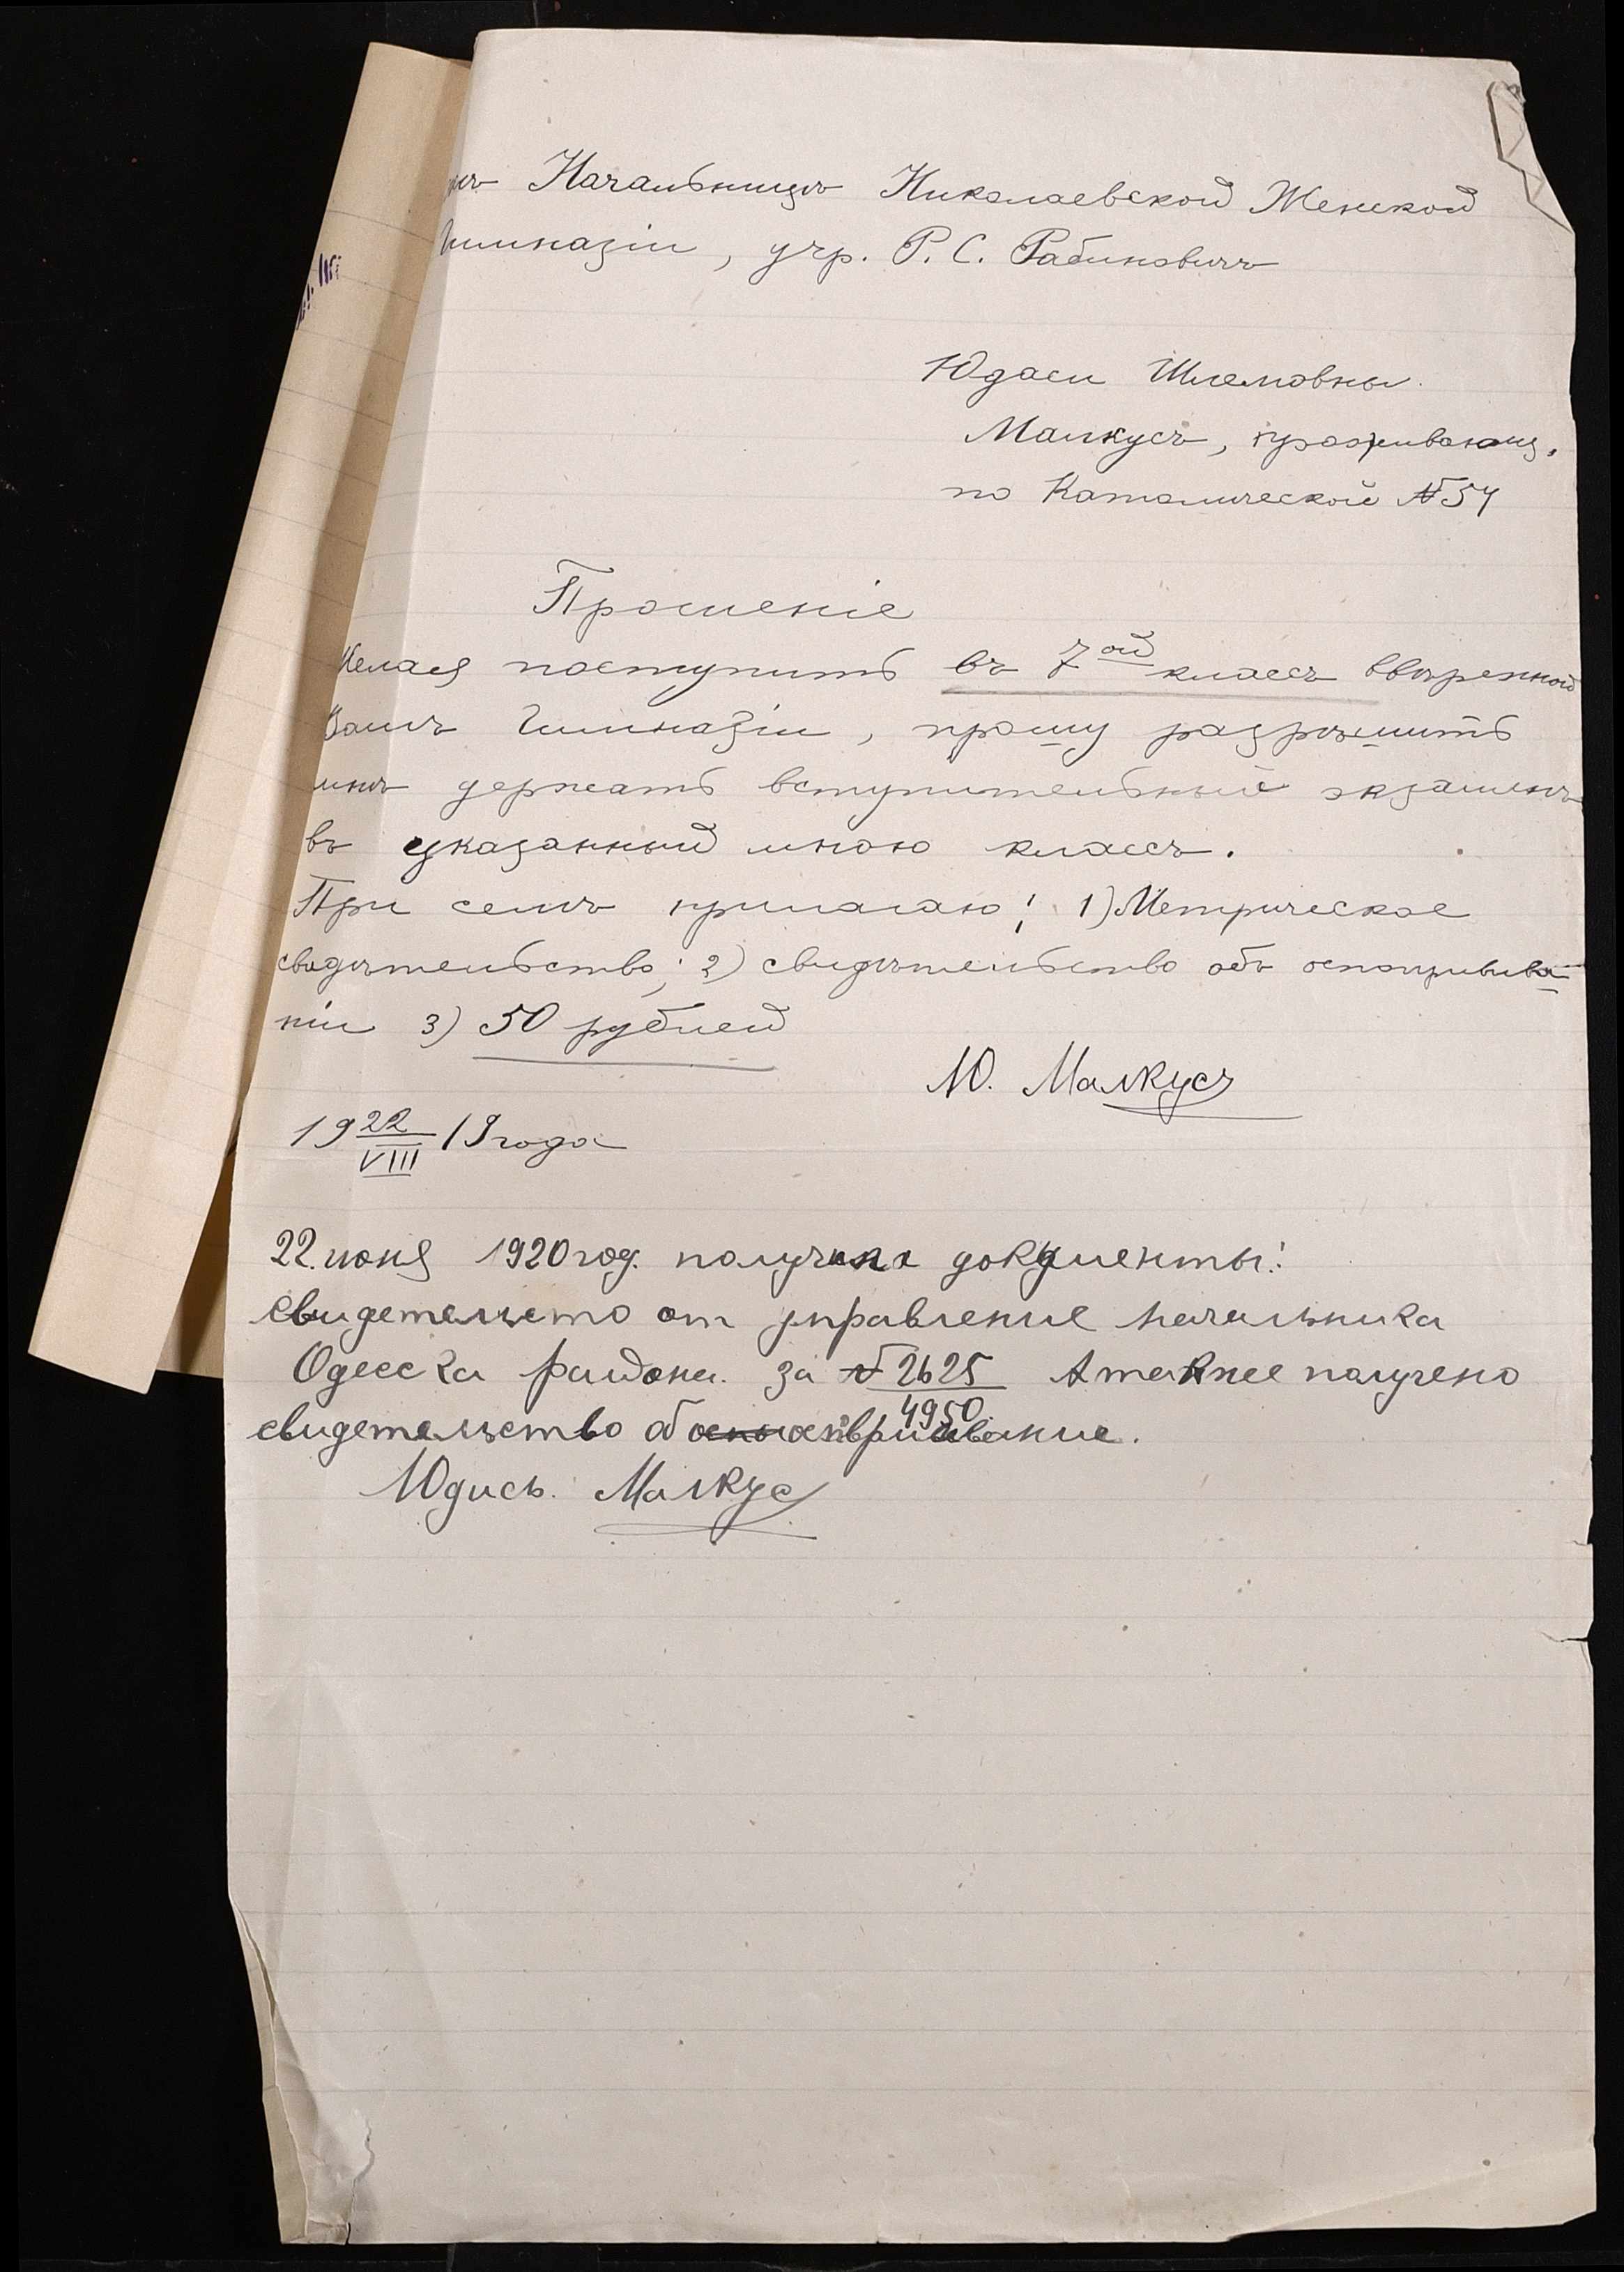 Начальницѣ Николаевской Женской
Гимназіи, учр. Р. С. Рабиновичъ
Юдаси Шлемовны
Малкусъ, проживающ.
по Католической №54
Прошеніе
Желая поступить въ 7ой классъ ввѣренной
Вамъ Гимназіи, прошу разрѣшить
мнѣ держать вступительный экзаменъ
въ указанный мною классъ.
При семъ прилагаю: 1) Метрическое
свидѣтельство; 2) свидѣтельство объ оспопривива-
ніи 3) 50 рублей
Ю. Малкусъ
19 22/VIII 19 года
22 июня 1920 год. получила документы:
свидетельсто от управление начальника
Одесска района за № 2625/4950 А также получено
свидетельство об оспопрививание.
Юдись. Малкус